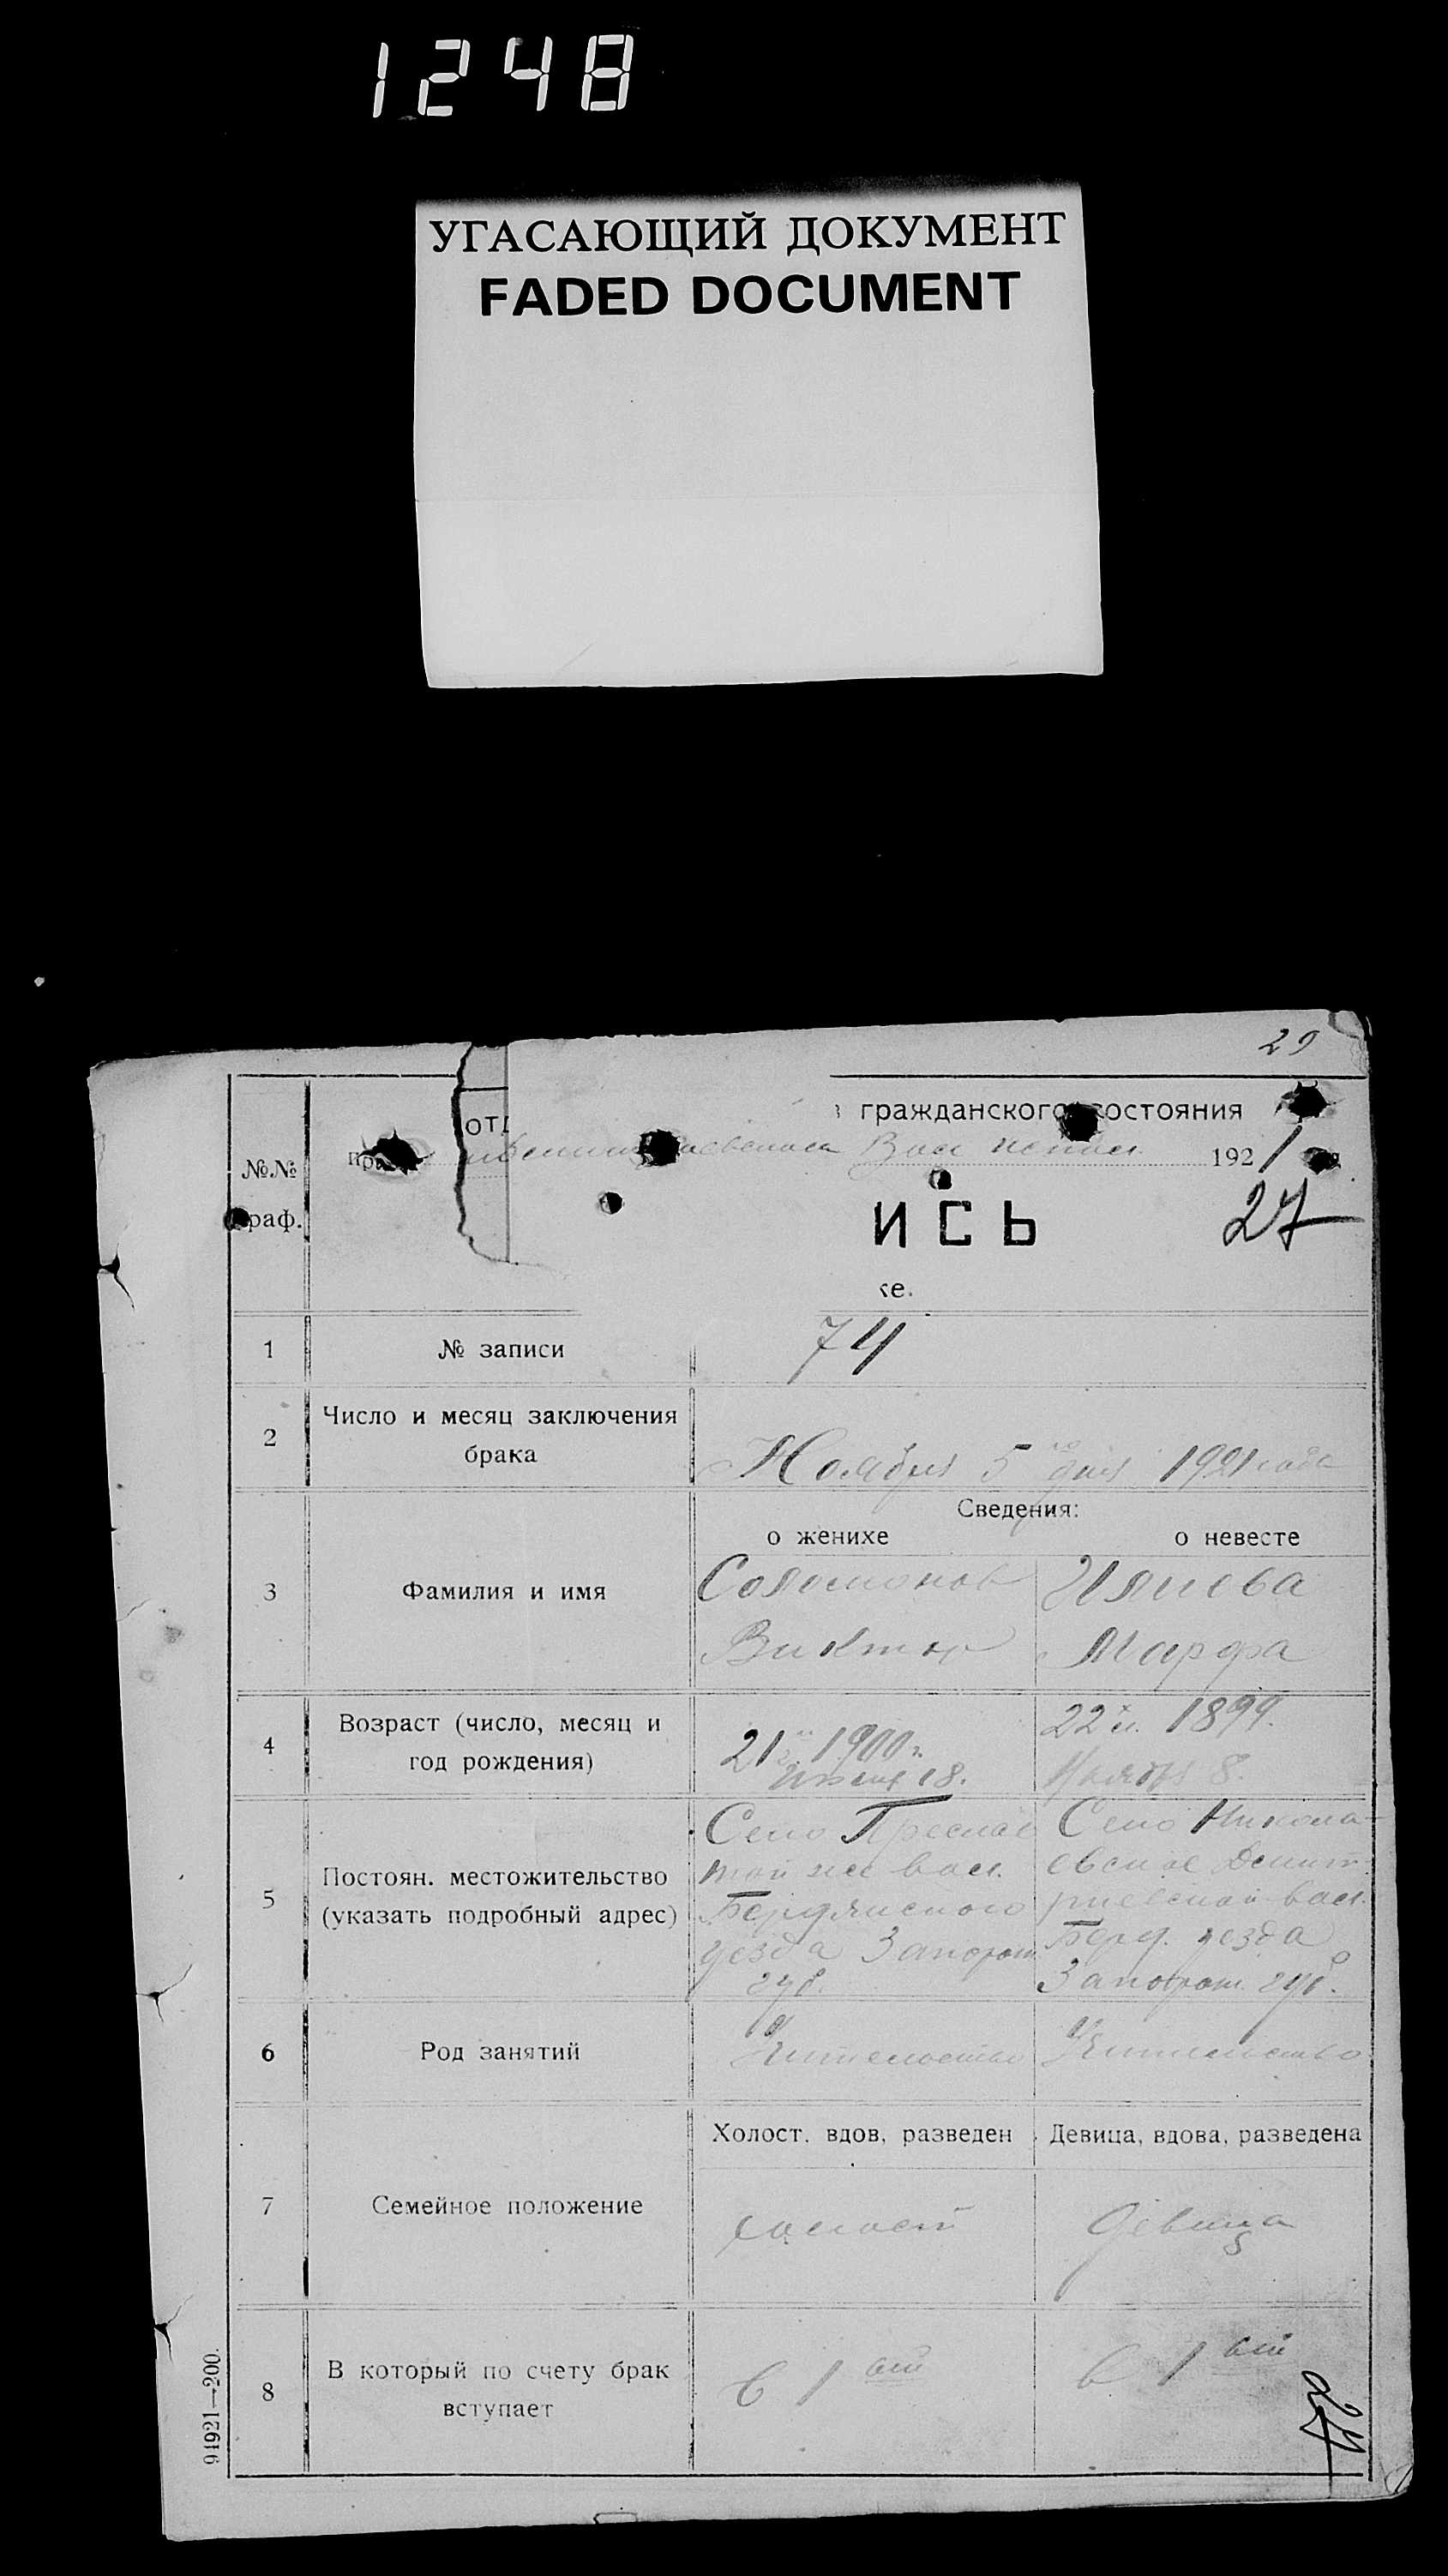 1248
УГАСАЮЩИЙ ДОКУМЕНТ
FADED DOCUMENT
29
ОТ гражданского состояния
№№ Пра Волисполком 1921
граф.
ИСЬ 27
ке.
1 № записи 74
2 Число и месяц заключения
брака
Ноября 5го дня 1921 года
Сведения:
о женихе о невесте
3 Фамилия и имя
Соломонов Иляева
Виктор Марфа
4 Возраст (число, месяц и
год рождения)
21 1900 г. 22х л. 1899.
18. Ноября 8.
5 Постоян. местожительство
(указать подробный адрес)
Село Преслав Село Никола-
той же вол. евское Дмит-
Бердянского риевской вол.
уезда Запорож. Берд. уезда
губ. Запорож. губ.
6 Род занятий
Учительство Учительство
7 Семейное положение
Холост. вдов, разведен Девица, вдова, разведена
холост девица
8 В который по счету брак
вступает
в 1 ый в 1 ый
94921—200.